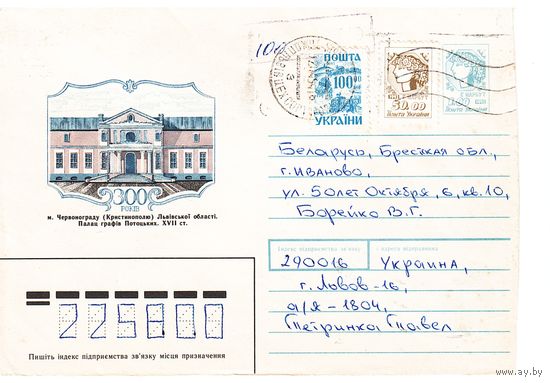 100
ПОШТА
100.00
УКРАЇНИ
50.00
Пошта України
Пошта України
Беларусь, Брестская обл.,
г. Иваново,
ул. 50 лет Октября, 6, кв. 10,
Борейко В.Г.
300
РОКІВ
м. Червонограду (Кристинополю) Львівської області.
Палац графів Потоцьких. XVII ст.
Індекс підприємства зв'язку і адреса відправника
290016 Украина,
г. Львов-16,
а/я-1804,
Петринка Павел
225800
Пишіть індекс підприємства зв'язку місця призначення
www.ay.by